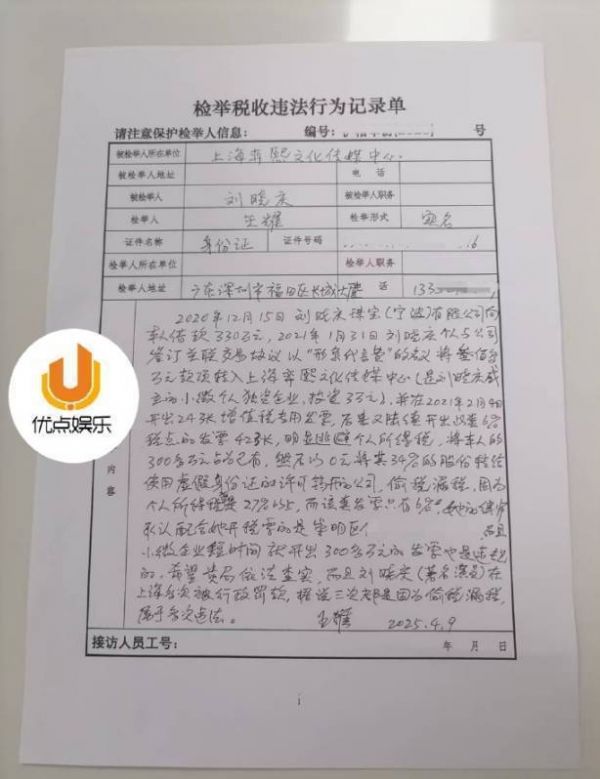 检举税收违法行为记录单
请注意保护检举人信息： 编号： 号
被检举人所在单位 上海 熙文化传媒中心.
被检举人地址 电 话
被检举人 刘晓庆 被检举人职务
检举人 王耀 检举形式 实名
证件名称 身份证 证件号码 6
检举人所在单位 检举人职务
检举人地址 广东深圳市福田区长城大厦 话 133
2020年12月15日刘晓庆珠宝(宁波)有限公司向
本人借款330万元, 2021年1月31日刘晓庆个人与公司
签订关联交易协议以"形象代言费"的名义将叁佰多
万元款项转入上海 熙文化传媒中心(是刘晓庆成
立的小微个人独资企业, 投资3万元), 并在2021年2月4日
开出24张增值税专用发票, 后来又陆续开出 6%
税点的发票42张, 明显逃避个人所得税, 将本人的
300多万元占为己有, 然后以0元将其34%的股份转给
使用虚假身份证的许可 的公司, 偷税漏税, 因为
个人所得税 27% 而该 发票只有6%, 她的
承认配合她开税票的是崇明区 而且
小微企业短时间就开出300多万元的发票也是违规
的, 希望贵局依法查实, 而且刘晓庆(著名演员)在
上海多次被行政罚款, 据说三次都是因为偷税漏税,
属于多次违法。 王耀 2025.4.9
内容
接访人员工号： 年 月 日
优点娱乐